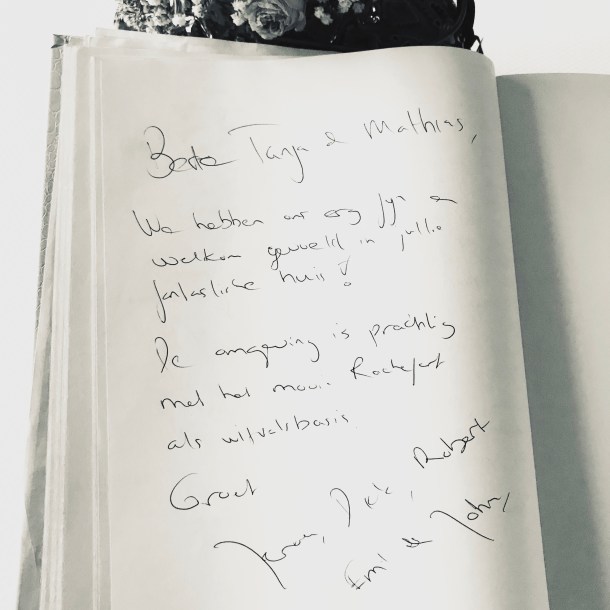 Beste Tanja & Mathias,
We hebben ons erg fijn en
welkom gevoeld in jullie
fantastische huis!
De omgeving is prachtig
met het mooie Rochefort
als uitvalsbasis.
Groet
Robert
John,